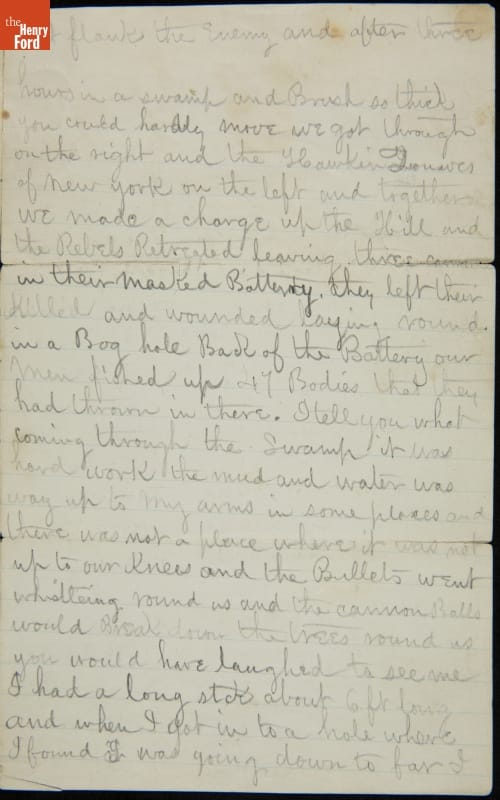 the
Henry
Ford
flank the Enemy and after three
hours in a swamp and Brush so thick
you could hardly move we got through
on the right and the Hawkin Zouaves
of New York on the left and together
we made a charge up the Hill and
the Rebels Retreated leaving three cannon
in their masked Battery, they left their
Killed and wounded laying round.
in a Bog hole Back of the Battery our
Men fished up 47 Bodies that they
had thrown in there. I tell you what
coming through the Swamp it was
hard work the mud and water was
way up to my arms in some places and
there was not a place where it was not
up to our Knees and the Bullets went
whistleing round us and the cannon Balls
would Break down the trees round us
you would have laughed to see me
I had a long stick about 6 ft long
and when I got in to a hole where
I found I was going down to far I